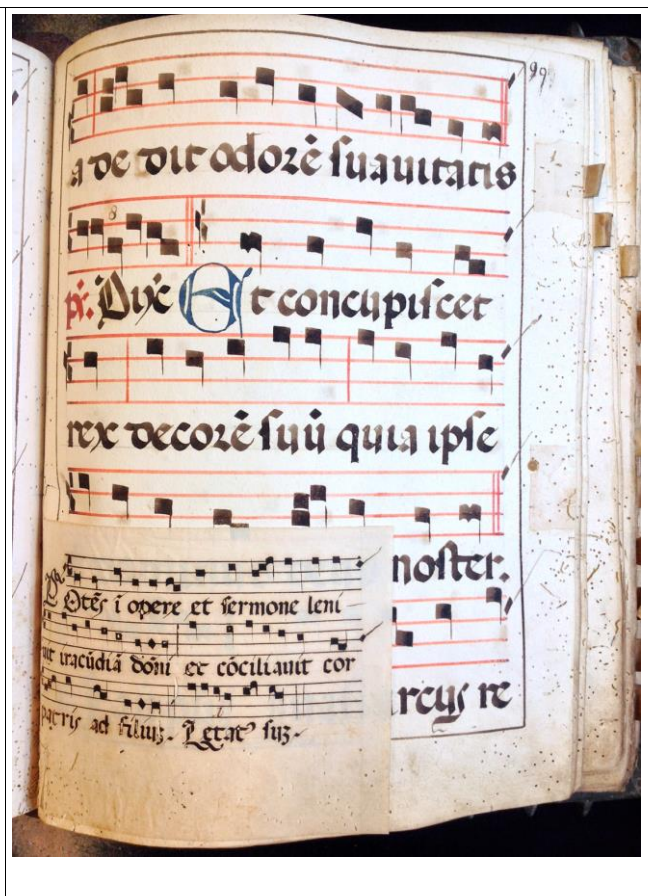 99
a de dit odorē suauitatis
ps. Dix̄ Et concupiscet
rex decorē suū quia ipse
noster.
rcus re
Potēs ī opere et sermone leni
uit iracūdiā dōni et cōciliauit cor
patris ad filiuz. Letat⁹ suz.